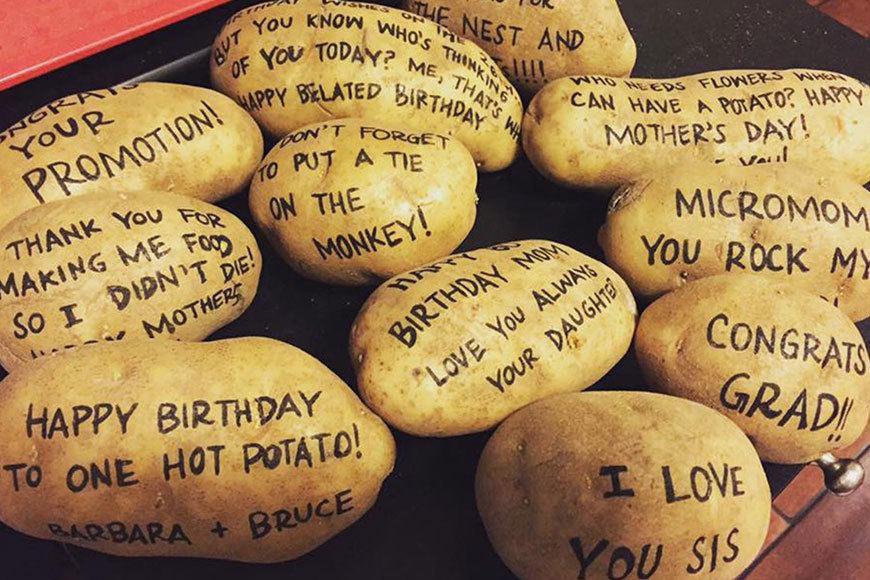 BIRTHDAY WISHES ON THE
BUT YOU KNOW WHO'S THINKING
OF YOU TODAY? ME, THAT'S
HAPPY BELATED BIRTHDAY
FOR
THE NEST AND
WHO NEEDS FLOWERS WHEN
CAN HAVE A POTATO? HAPPY
MOTHER'S DAY!
YOU!
CONGRATS
YOUR
PROMOTION!
DON'T FORGET
TO PUT A TIE
ON THE
MONKEY!
MICROMOM
YOU ROCK MY
THANK YOU FOR
MAKING ME FOOD
SO I DIDN'T DIE!
HAPPY MOTHERS
HAPPY
BIRTHDAY MOM
LOVE YOU ALWAYS
YOUR DAUGHTER
CONGRATS
GRAD!!
HAPPY BIRTHDAY
TO ONE HOT POTATO!
BARBARA + BRUCE
I LOVE
YOU SIS